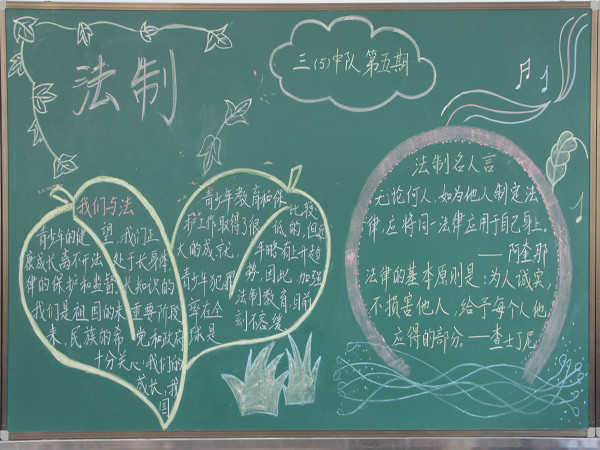 法制
三(5)中队 第五期
我们与法
青少年的健
康成长离不开法
律的保护和监督
我们是祖国的未
来,民族的希
望,我们正
处于长身体
长知识的
重要阶段
党和政府
十分关心我们的
成长,我
国
青少年教育和保
护工作取得了很
大的成就,
青少年犯罪
率在全
球是
比较
低的,但近
年略有上升趋
势,因此,加强
法制教育,目前
刻不容缓
法制名人言
无论何人,如为他人制定法
律,应将同一法律应用于自己身上。
——阿奎那
法律的基本原则是:为人诚实,
不损害他人,给予每个人他
应得的部分。——查士丁尼